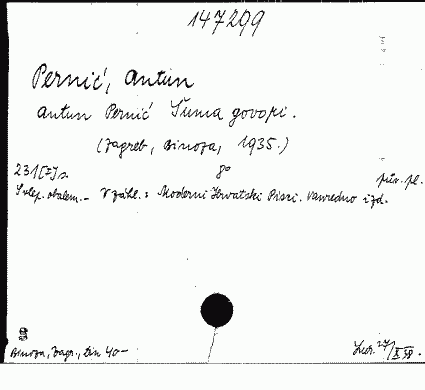 147299
Pernić, Antun
Antun Pernić Šuma govori.
(Zagreb, Binoza, 1935.)
231[I] s. 8° pův. pl.
S vlep. obalem. – V záhl.: Moderni Hrvatski Pisci. Vanredno izd.
Binoza, Zagr., din 40–
27/X 38.